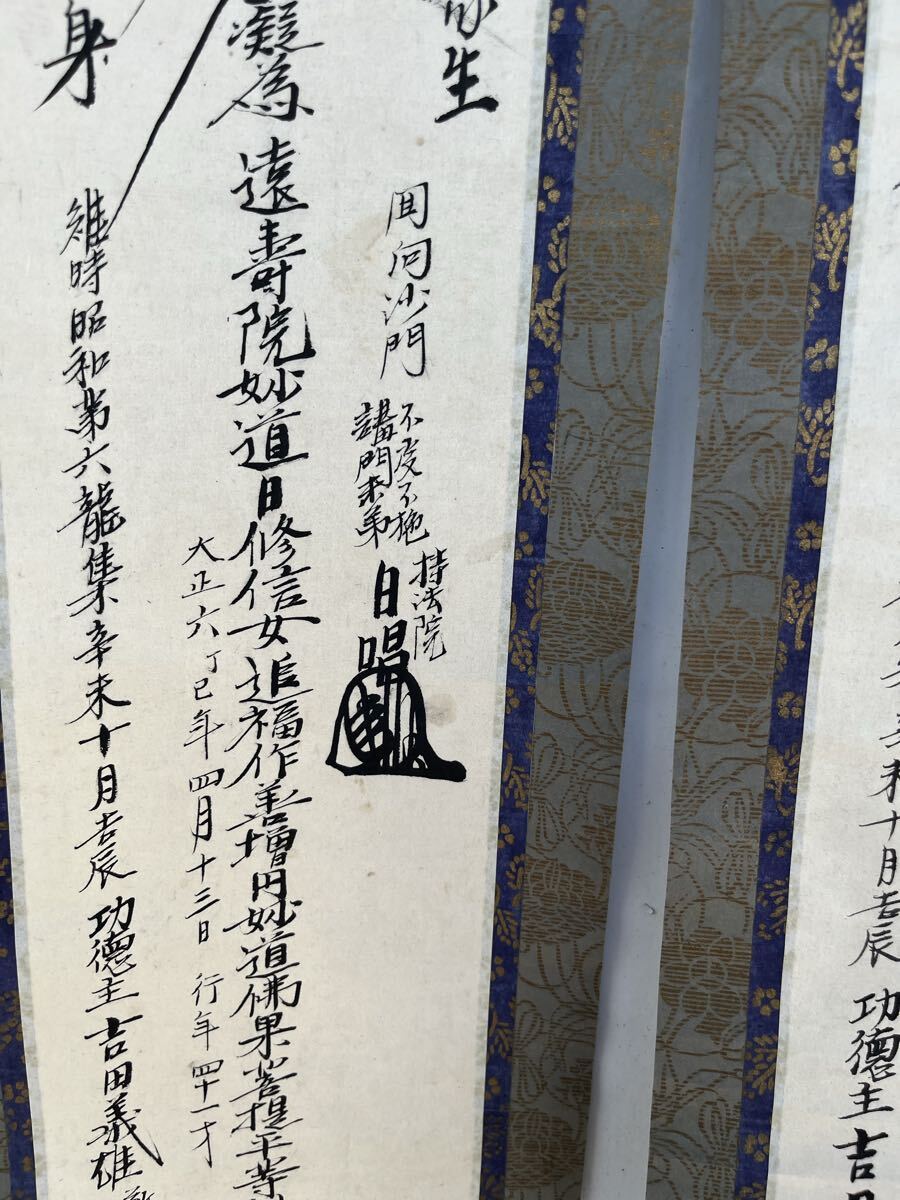 生
回向沙門
不受不施
講門末弟
持法院
日唱
凝為遠壽院妙道日修信女追福作善増円妙道佛果菩提平等
大正六丁巳年四月十三日 行年四十一才
身
維時昭和第六龍集辛未十月吉辰 功德主吉田義雄
辛未十月吉辰 功德主吉田